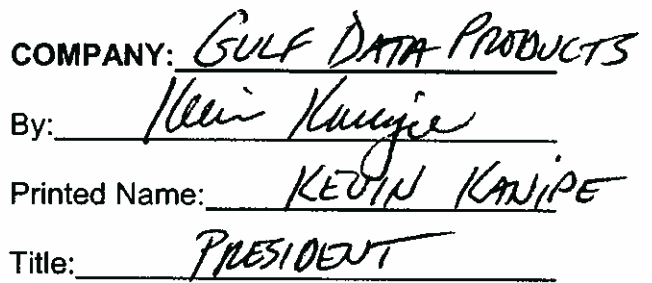 COMPANY: GULF DATA PRODUCTS
By: Kevin Kanipe
Printed Name: KEVIN KANIPE
Title: PRESIDENT